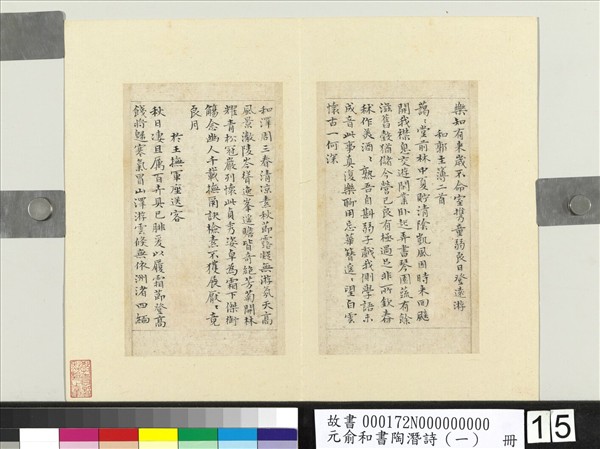 樂知有來歲不命室攜童弱良日登遠游
和郭主簿二首
藹ゝ堂前林中夏貯清陰凱風因時來回飇
開我襟息交遊閒業卧起弄書琴園蔬有餘
滋舊穀猶儲今營己良有極過足非所欽舂
秫作美酒ゝ熟吾自斟弱子戲我側學語未
成音此事真復樂聊用忘華簪遙ゝ望白雲
懷古一何深
和澤周三春清涼素秋節露凝無游氛天高
風景澈陵岑聳逸峯遙瞻皆奇絕芳菊開林
耀青松冠巖列懷此貞秀姿卓為霜下傑銜
觴念幽人千載撫爾訣檢素不獲展厭ゝ竟
良月
於王撫軍座送客
秋日淒且厲百卉具已腓爰以履霜節登高
餞將歸寒氣冒山澤游雲倐無依洲渚四緬
故書000172N000000000
元俞和書陶潛詩(一) 冊
15